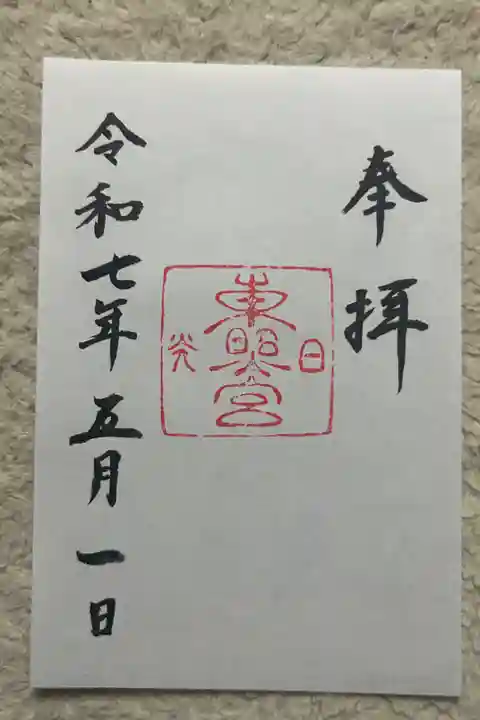 奉拝
日光
東照宮
令和七年五月一日